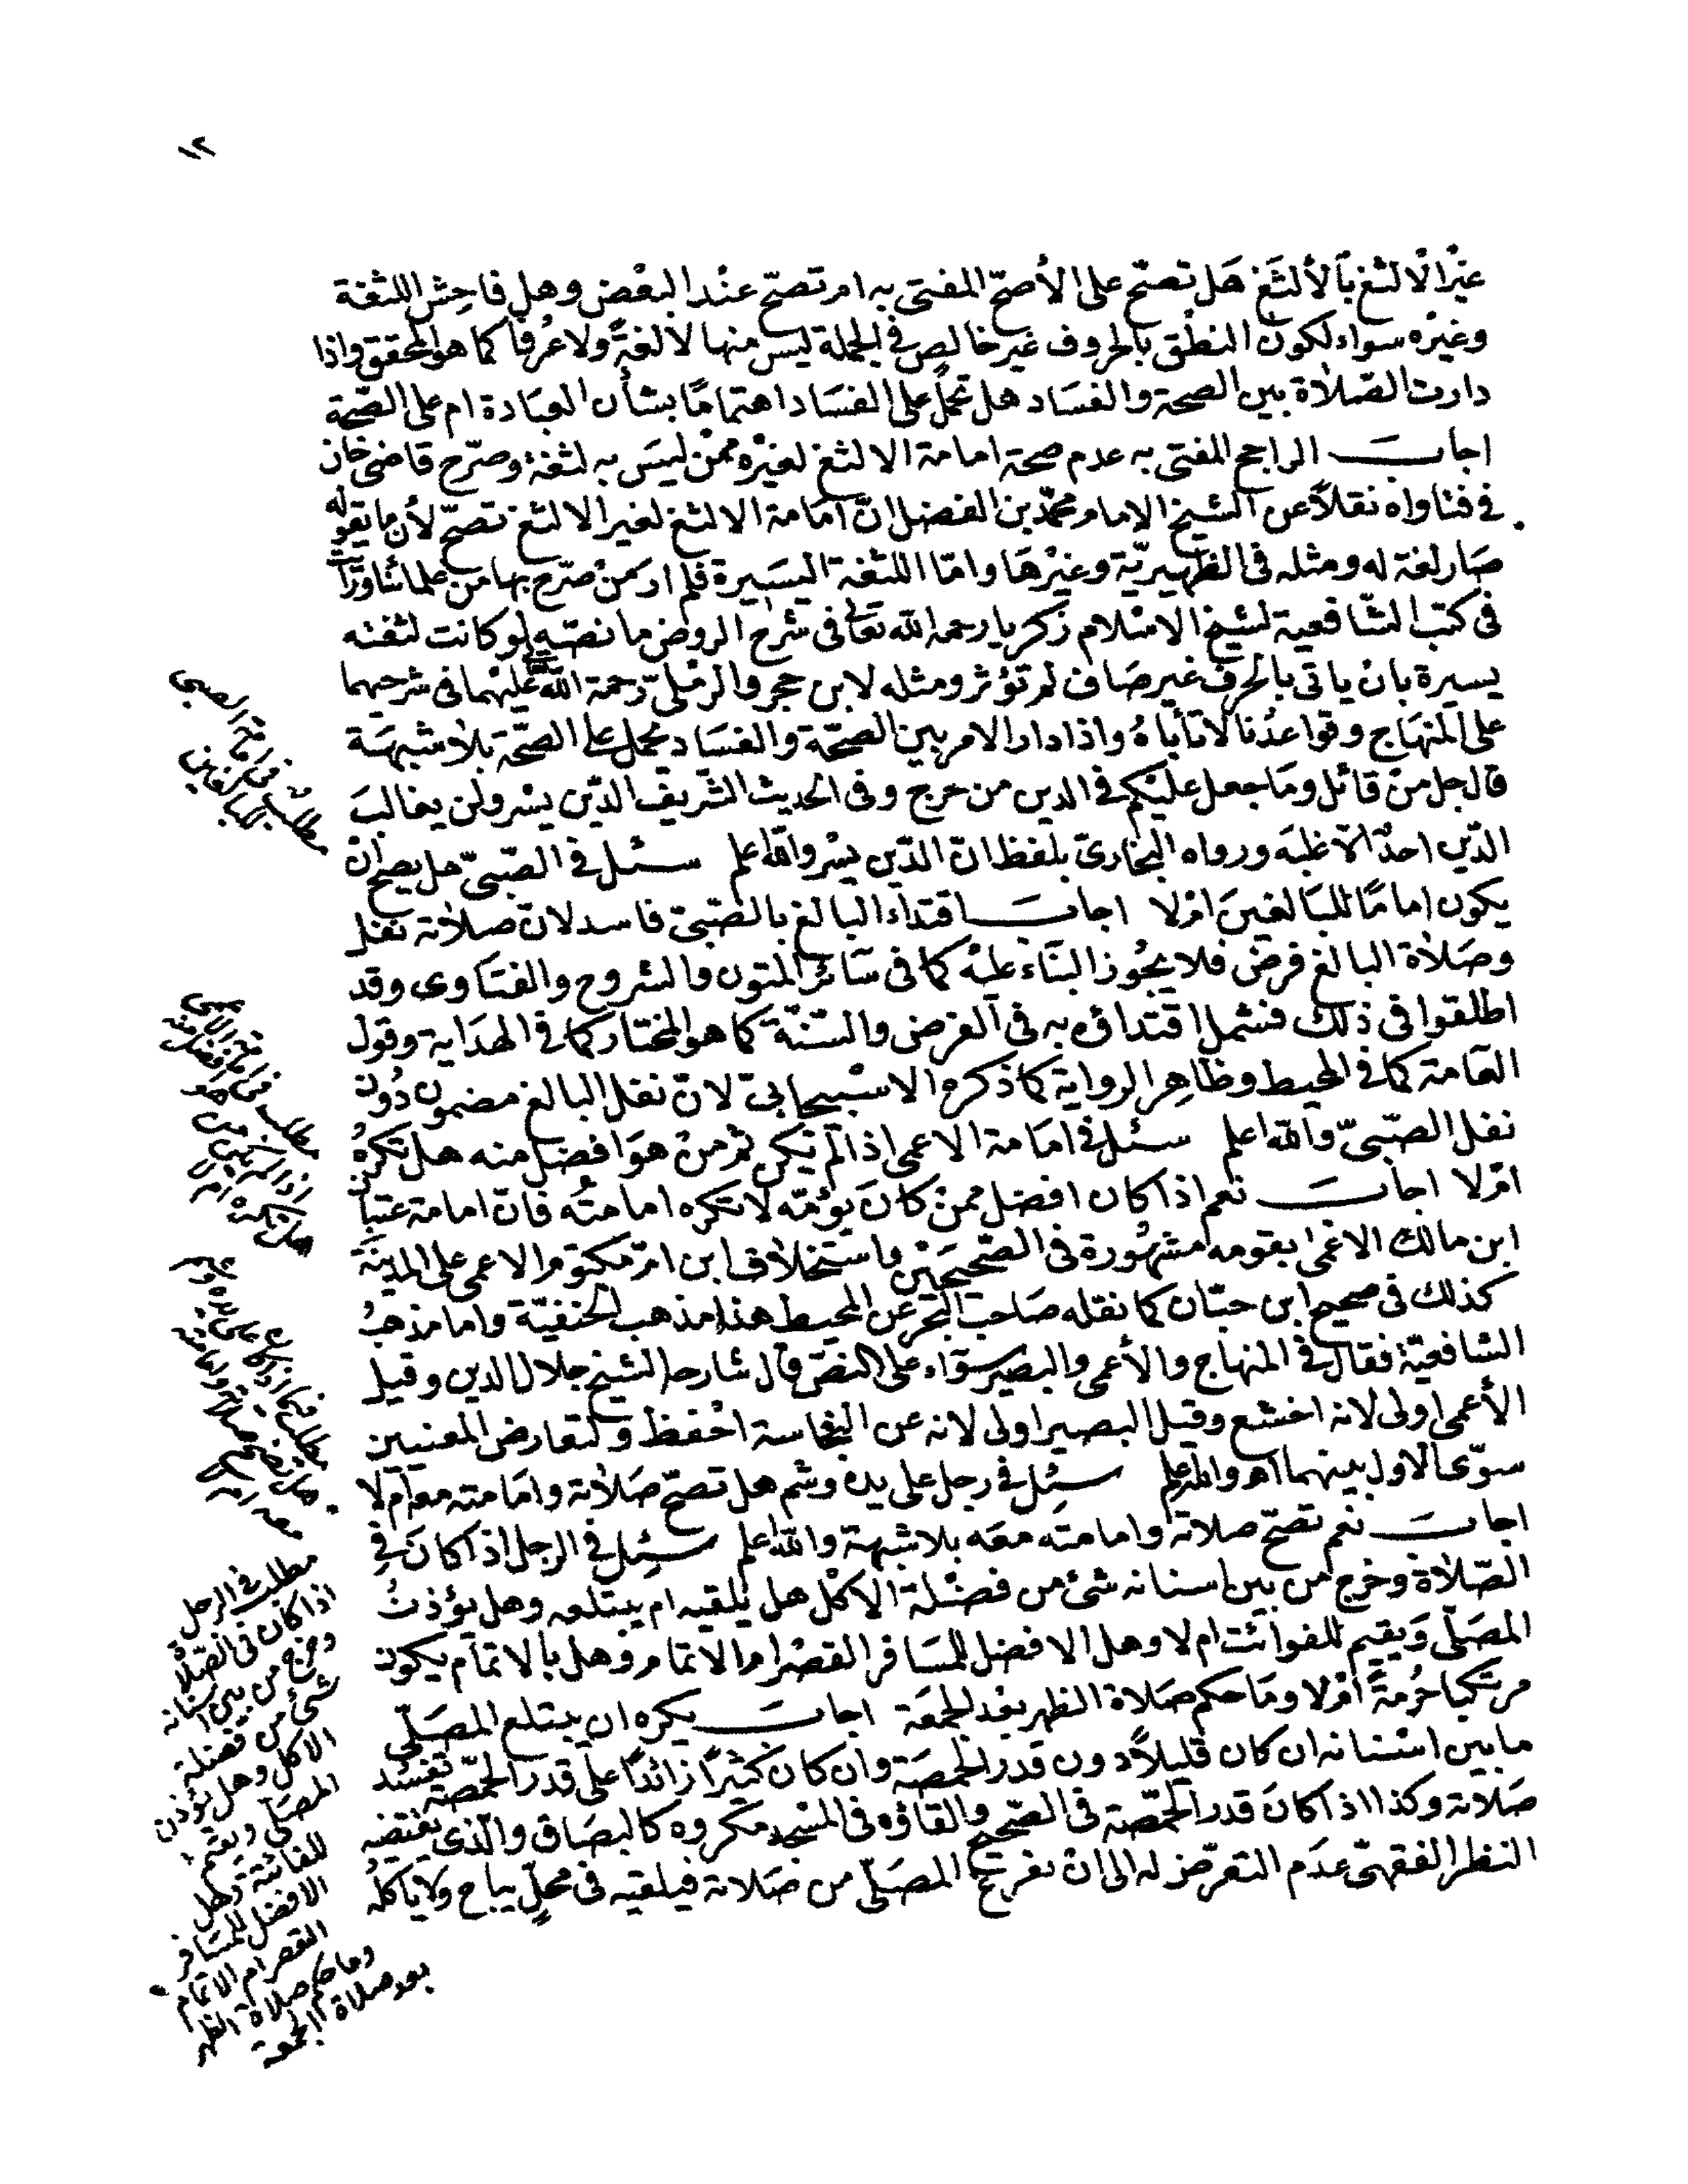 ١٢
غير الالثغ بالألثغ هل تصح على الأصح المفتى به ام تصح عند البعض وهل فاحش اللثغة
وغيره سواء لكون النطق بالحروف غير خالص في الجملة ليس منها لا لغة ولا عرفا كما هو المحقق واذا
دارت الصلاة بين الصحة والفساد هل تحمل على الفساد اهتماما بشأن العبادة ام على الصحة
اجاب الراجح المفتى به عدم صحة امامة الالثغ لغيره ممن ليس به لثغة وصرح قاضى خان
في فتاواه نقلا عن الشيخ الامام محمد بن الفضل ان امامة الالثغ لغير الالثغ تصح لأن ما يقوله
صار لغة له ومثله فى الظهيرية وغيرها واما اللثغة اليسيرة فلم ار من صرح بها من علمائنا ورأيت
فى كتب الشافعية لشيخ الاسلام زكريا رحمه الله تعالى فى شرح الروض ما نصه لو كانت لثغته
يسيرة بان ياتى بالحرف غير صاف لم تؤثر ومثله لابن حجر والرملى رحمة الله عليهما فى شرحيهما
على المنهاج وقواعدنا لا تأباه واذا دار الامر بين الصحة والفساد يحمل على الصحة بلا شبهة
قال جل من قائل وما جعل عليكم فى الدين من حرج وفى الحديث الشريف الدين يسر ولن يغالب
الدين احد الا غلبه ورواه البخارى بلفظ ان الدين يسر والله اعلم سئل فى الصبى هل يصح ان
يكون اماما للبالغين ام لا اجاب اقتداء البالغ بالصبى فاسد لان صلاته نفل
وصلاة البالغ فرض فلا يجوز البناء عليه كما فى سائر المتون والشروح والفتاوى وقد
اطلقوا فى ذلك فشمل اقتداؤه به فى الفرض والسنة كما هو المختار كما فى الهداية وقول
العامة كما فى المحيط وظاهر الرواية كما ذكره الاسبيجابى لان نفل البالغ مضمون دون
نفل الصبى والله اعلم سئل فى امامة الاعمى اذا لم يكن ثم من هو افضل منه هل تكره
ام لا اجاب نعم اذا كان افضل ممن كان يؤمه لا تكره امامته فان امامة عتبان
ابن مالك الاعمى بقومه مشهورة فى الصحيحين واستخلاف ابن ام مكتوم الاعمى على المدينة
كذلك فى صحيح ابن حبان كما نقله صاحب البحر عن المحيط هذا مذهب الحنفية واما مذهب
الشافعية فقال فى المنهاج والأعمى والبصير سواء على النص قال شارحه الشيخ جلال الدين وقيل
الأعمى اولى لانه اخشع وقيل البصير اولى لانه عن النجاسة احفظ ولتعارض المعنيين
سوى الاول بينهما اهـ والله اعلم سئل فى رجل على يده وشم هل تصح صلاته وامامته معه ام لا
اجاب نعم تصح صلاته وامامته معه بلا شبهة والله اعلم سئل فى الرجل اذا كان فى
الصلاة وخرج من بين اسنانه شئ من فضلة الاكل هل يلقيه ام يبتلعه وهل يؤذن
المصلى ويقيم للفوائت ام لا وهل الافضل للمسافر القصر ام الاتمام وهل بالاتمام يكون
مرتكبا حرمة ام لا وما حكم صلاة الظهر بعد الجمعة اجاب يكره ان يبتلع المصلى
ما بين اسنانه ان كان قليلا دون قدر الحمصة وان كان كثيرا زائدا على قدر الحمصة تفسد
صلاته وكذا اذا كان قدر الحمصة فى الصحيح والقاؤه فى المسجد مكروه كالبصاق والذى يقتضيه
النظر الفقهى عدم التعرض له الى ان يفرغ المصلى من صلاته فيلقيه فى محل يباح ولا يأكله
مطلب فى امامة الصبى
للبالغين
مطلب فى امامة الاعمى
اذا لم يكن ثم من هو افضل منه
هل تكره ام لا
مطلب فيما اذا كان على يده وشم
هل تصح صلاته وامامته
معه ام لا
مطلب فى الرجل
اذا كان فى الصلاة
وخرج من بين اسنانه
شئ من فضلة
الاكل وهل يؤذن
المصلى ويقيم
للفائتة وهل
الافضل للمسافر
القصر ام الاتمام
وما حكم صلاة الظهر
بعد صلاة الجمعة